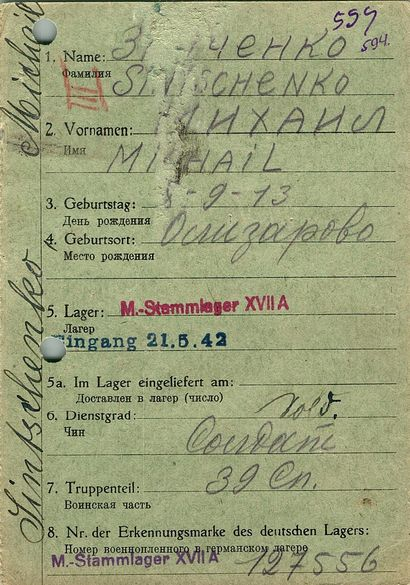 559
594.
1. Name: З ЧЕНКО
Фамилия
III
S SCHENKO
2. Vornamen: МИХАИЛ
Имя
MICHAIL
3. Geburtstag: 5-9-13
День рождения
4. Geburtsort: Осизарово
Место рождения
5. Lager: M.-Stammlager XVII A
Лагер
Eingang 21.5.42
5a. Im Lager eingeliefert am:
Доставлен в лагер (число)
6. Dienstgrad: Sold.
Чин Солдат
39 Сп.
7. Truppenteil:
Воинская часть
8. Nr. der Erkennungsmarke des deutschen Lagers:
Номер военнопленного в германском лагере
M.-Stammlager XVII A 127556
Sintschenko Michail